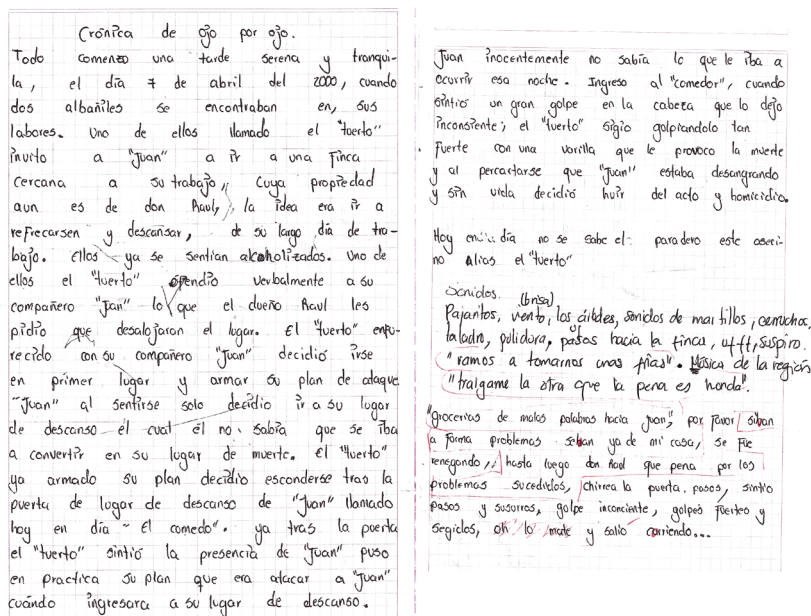 Crónica de ojo por ojo.
Todo comenzo una tarde serena y tranqui-
la, el día 7 de abril del 2000, cuando
dos albañiles se encontraban en, sus
labores. Uno de ellos llamado el "tuerto"
invito a "Juan" a ir a una finca
cercana a su trabajo, cuya propiedad
aun es de don Raul, la idea era ir a
refrecarsen y descansar, de su largo día de tra-
bajo. Ellos ya se sentian alcoholizados. Uno de
ellos el "tuerto" ofendio verbalmente a su
compañero "Juan" lo que el dueño Raul les
pidio que desalojaran el lugar. El "tuerto" enfu-
recido con su compañero "Juan" decidió irse
en primer lugar y armar su plan de adaque
"Juan" al sentirse solo decidio ir a su lugar
de descanso el cual él no sabía que se iba
a convertir en su lugar de muerte. El "tuerto"
ya armado su plan decidio esconderse tras la
puerta de lugar de descanso de "Juan" llamado
hoy en día "El comedo". ya tras la puerta
el "tuerto" sintió la presencia de "Juan" puso
en practica su plan que era atacar a "Juan"
cuándo ingresara a su lugar de descanso.
Juan inocentemente no sabía lo que le iba a
ocurrir esa noche. Ingreso al "comedor", cuando
sintio un gran golpe en la cabeza que lo dejo
inconsiente; el "tuerto" sigio golpiandolo tan
fuerte con una varilla que le provoco la muerte
y al percartarse que "Juan" estaba desangrando
y sin vida decidió huir del acto y homicidio.
Hoy en día no se sabe el paradero este aseci-
no Alias el "tuerto"
Sonidos. (brisa)
Pajaritos, viento, los árboles, sonidos de martillos, cerrucho,
taladro, pulidora, pasos hacia la finca, uff, suspiro.
"vamos a tomarnos unas frías". Música de la región
"traigame la otra que la pena es honda".
"Grocerias de malas palabras hacia Juan", por favor si van
a forma problemas se van ya de mi casa, se fue
renegando, hasta luego don Raul que pena por los
problemas sucedidos, chirrea la puerta, pasos, sintio
pasos y susurros, golpe inconciente, golpes fuertes y
segidos, oh lo mate y salio corriendo...